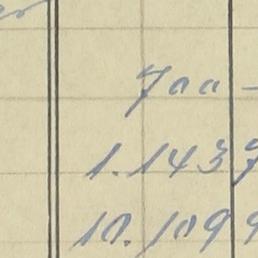 700 -
1.1439
10.1099